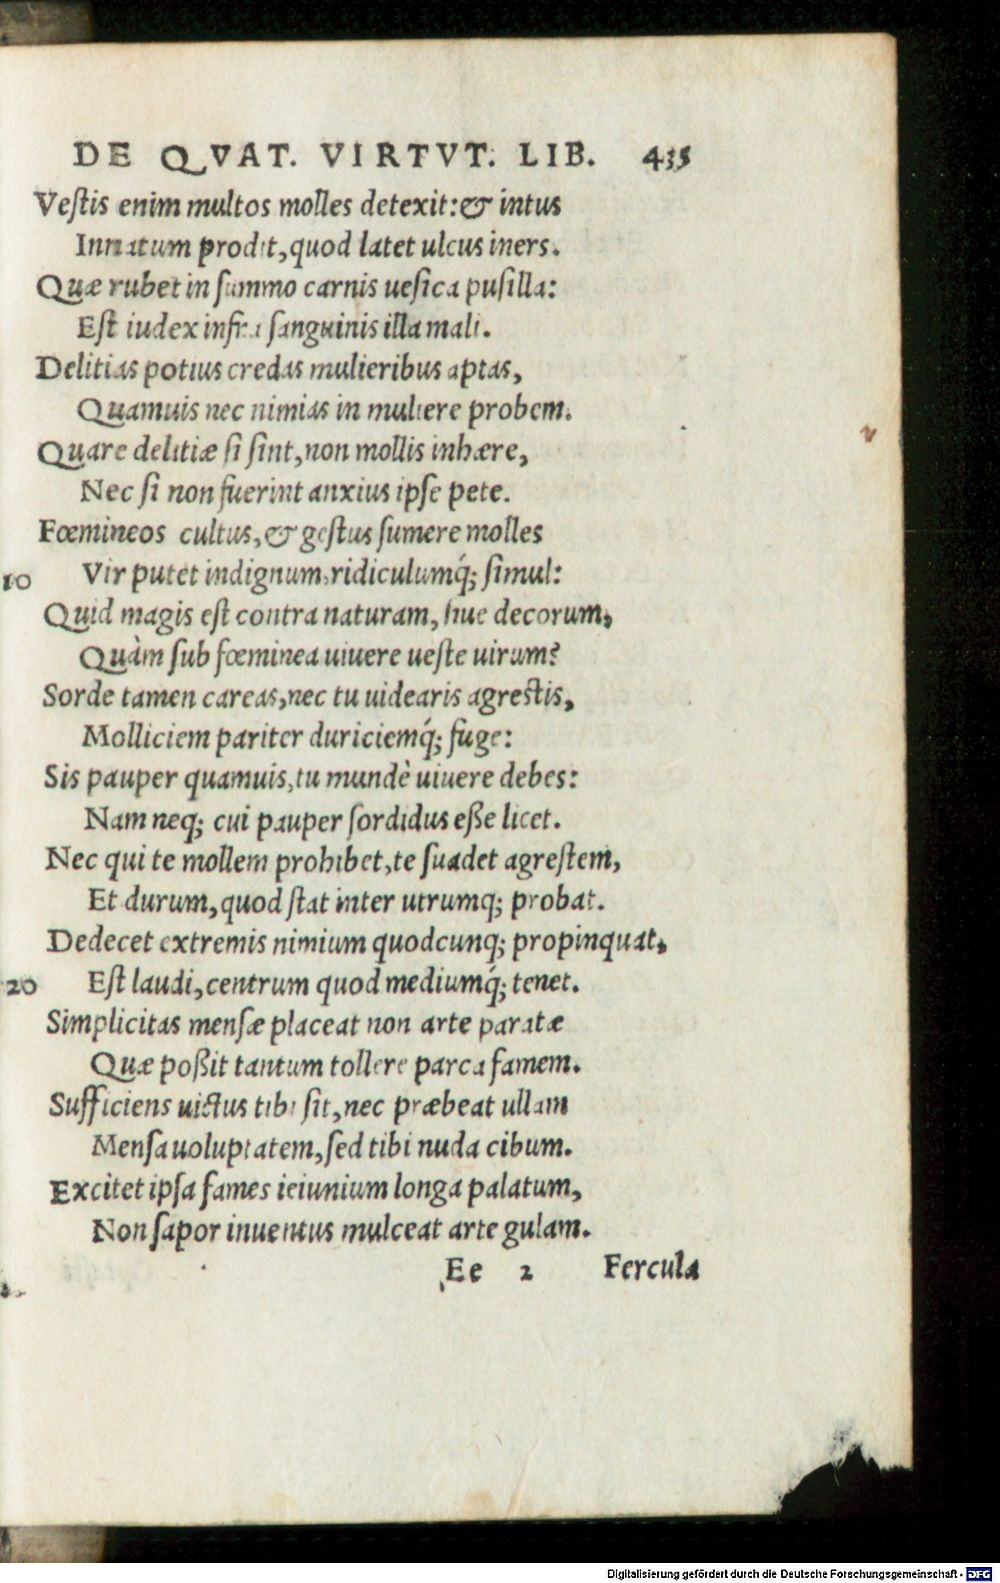 DE QVAT. VIRTVT. LIB. 435
Vestis enim multos molles detexit:& intus
Innatum prodit, quod latet ulcus iners.
Quæ rubet in summo carnis uesica pusilla:
Est iudex infra sanguinis illa mali.
Delitias potius credas mulieribus aptas,
Quamuis nec nimias in muliere probem.
Quare delitiæ si sint, non mollis inhære,
Nec si non fuerint anxius ipse pete.
Fœmineos cultus, & gestus sumere molles
10 Vir putet indignum, ridiculumq́; simul:
Quid magis est contra naturam, siue decorum,
Quàm sub fœminea uiuere ueste uirum?
Sorde tamen careas, nec tu uidearis agrestis,
Molliciem pariter duriciemq́; fuge:
Sis pauper quamuis, tu mundè uiuere debes:
Nam neq; cui pauper sordidus eße licet.
Nec qui te mollem prohibet, te suadet agrestem,
Et durum, quod stat inter utrumq; probat.
Dedecet extremis nimium quodcunq; propinquat,
20 Est laudi, centrum quod mediumq́; tenet.
Simplicitas mensæ placeat non arte paratæ
Quæ poßit tantum tollere parca famem.
Sufficiens uictus tibi sit, nec præbeat ullam
Mensa uoluptatem, sed tibi nuda cibum.
Excitet ipsa fames ieiunium longa palatum,
Non sapor inuentus mulceat arte gulam.
Ee 2 Fercula
Digitalisierung gefördert durch die Deutsche Forschungsgemeinschaft - DFG